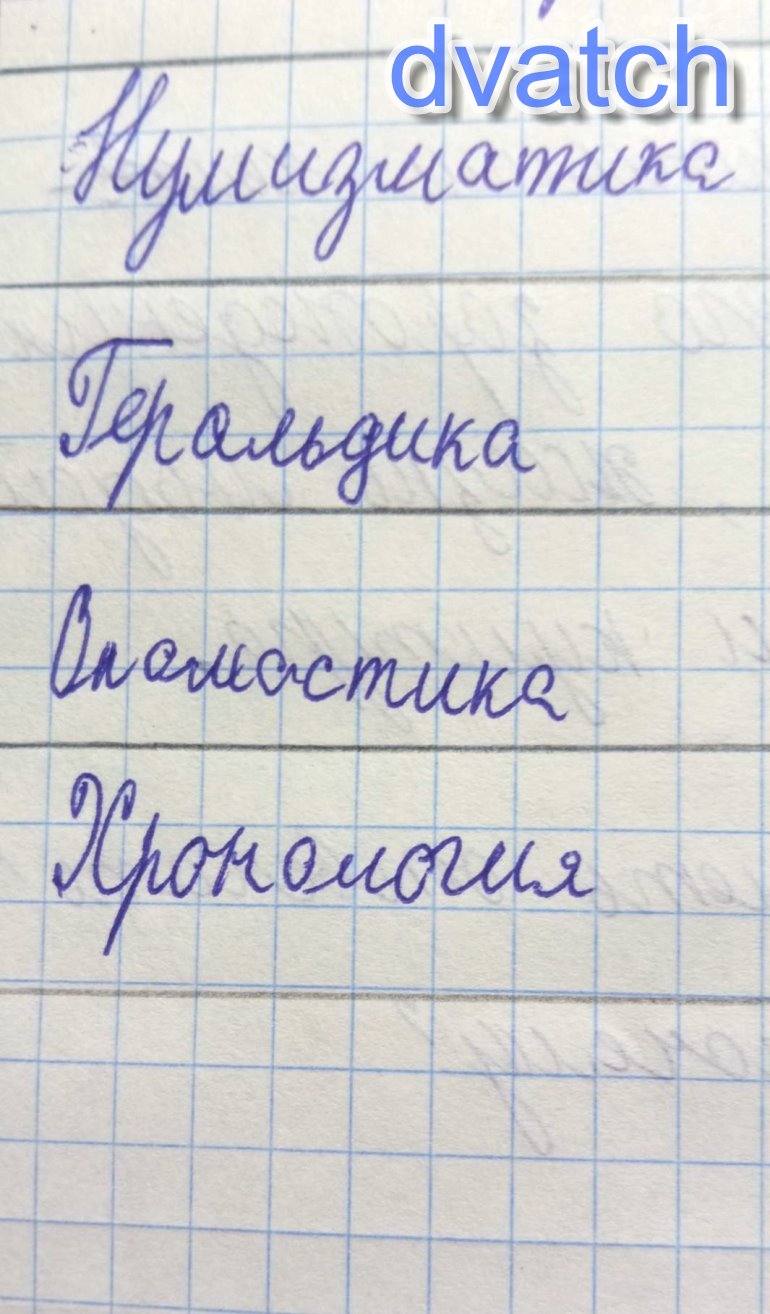 dvatch
Нумизматика
Геральдика
Онамастика
Хронология